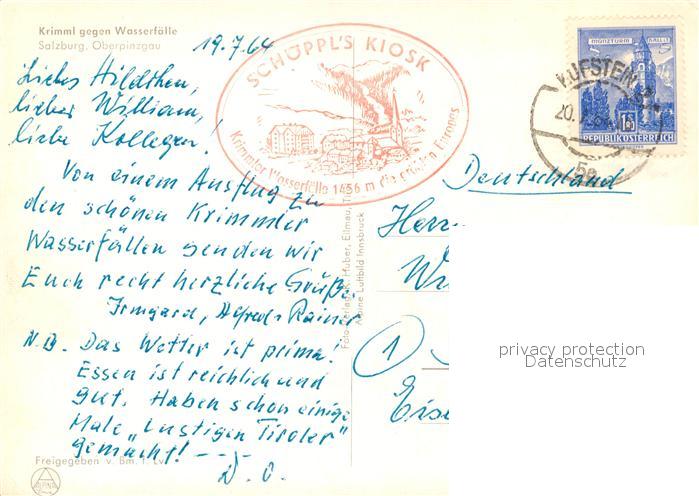 Krimml gegen Wasserfälle
Salzburg, Oberpinzgau
19.7.64
Liebes Hildchen,
lieber William,
liebe Kollegen!
Von einem Ausflug zu
den schönen Krimmler
Wasserfällen senden wir
Euch recht herzliche Grüße.
Irmgard, Alfred + Rainer
N.B. Das Wetter ist prima!
Essen ist reichlich und
gut. Haben schon einige
Male "Lustigen Tiroler"
gemacht! ---
D. O.
Freigegeben v. Bm. f. Lv.
ALPINA
SCHÖPPL'S KIOSK
Krimmler Wasserfälle 1456 m die größten Europas
Foto Verlag R. Huber, Ellmau, Ti
Alpine Luftbild Innsbruck
MÜNZTURM HALL I. T.
5
1S
REPUBLIK ÖSTERREICH
KUFSTEIN 2
20. 7. 64
5a
Deutschland
Herr
W
1
Eise
privacy protection
Datenschutz